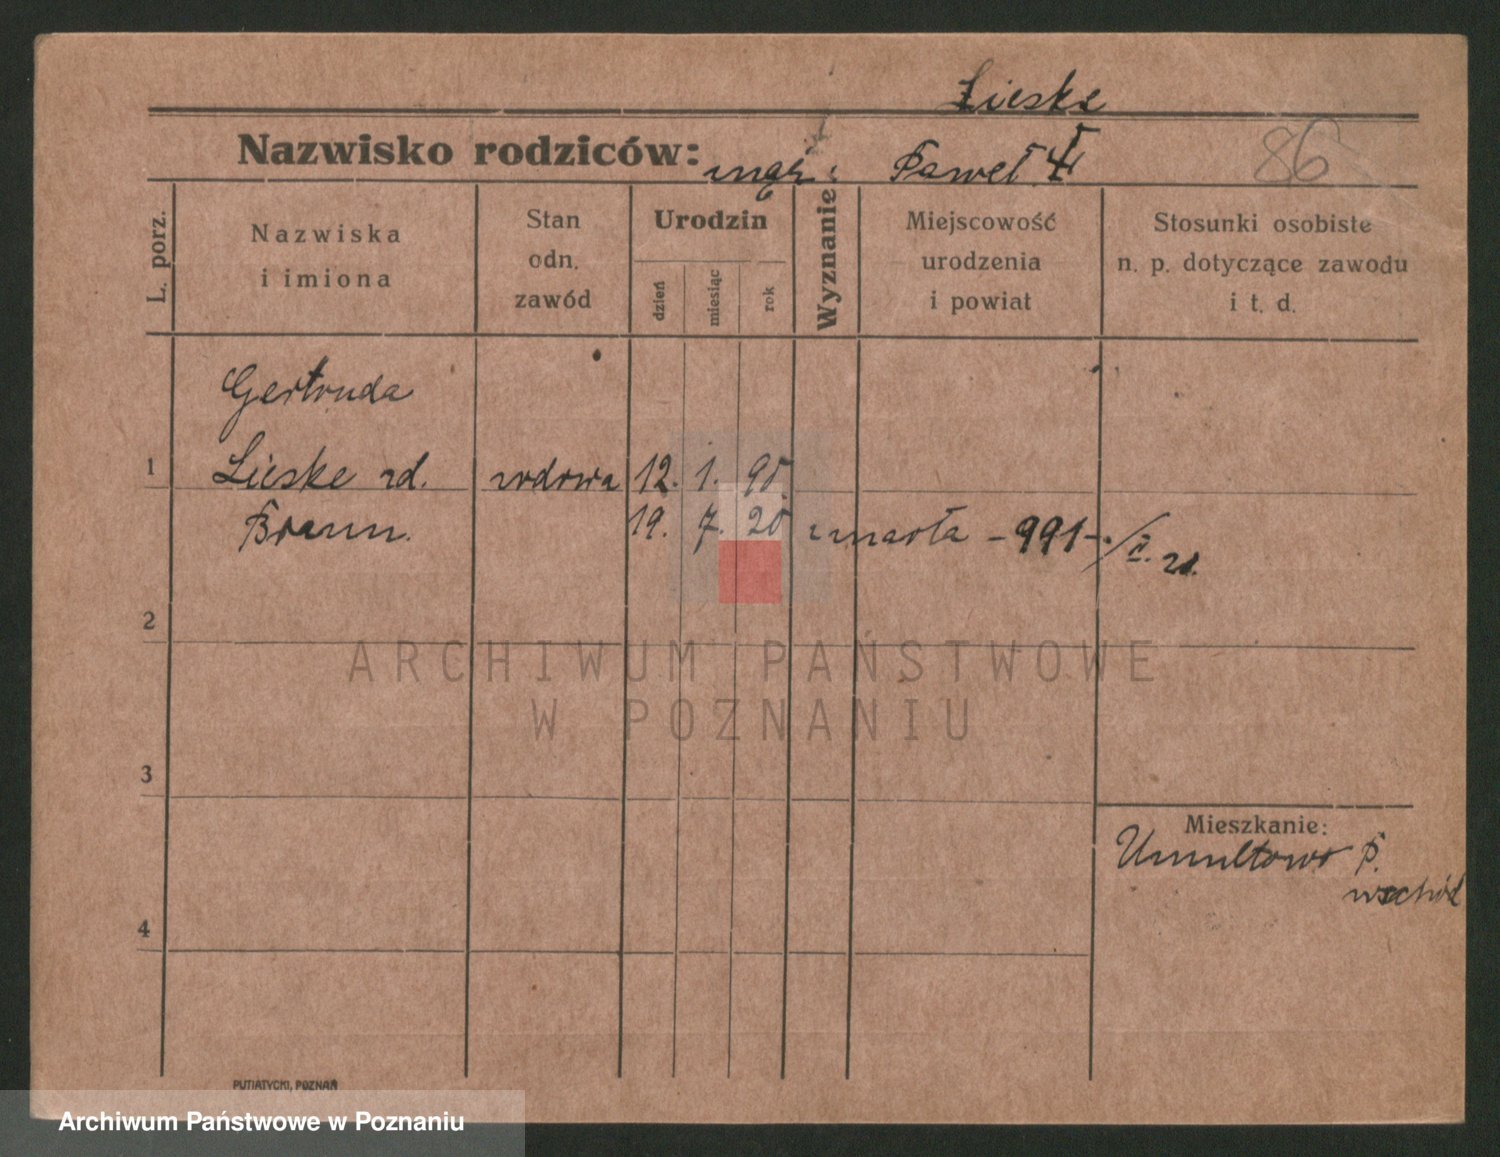 Lieske
Nazwisko rodziców: mąż: Paweł
86
L. porz.
Nazwiska
i imiona
Stan
odn.
zawód
Urodzin
dzień
miesiąc
rok
Wyznanie
Miejscowość
urodzenia
i powiat
Stosunki osobiste
n. p. dotyczące zawodu
i t. d.
Gertruda
1 Lieske zd. wdowa 12. 1. 90.
Braun. 19. 7. 20 zmarła - 991 -
2
ARCHIWUM PAŃSTWOWE
W POZNANIU
3
Mieszkanie:
Umultowo P.
wschód
4
PUTIATYCKI, POZNAŃ
Archiwum Państwowe w Poznaniu